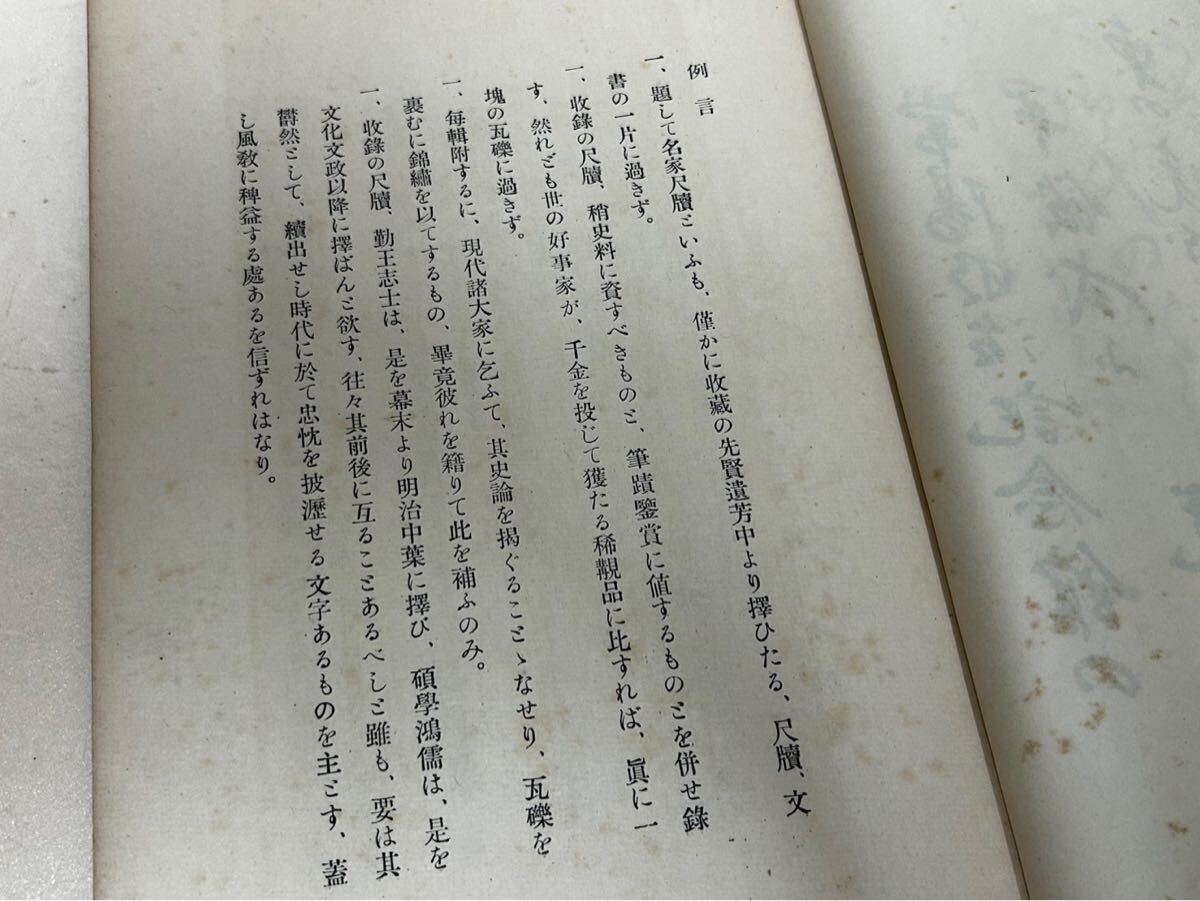 例言
一、題して名家尺牘といふも、僅かに收藏の先賢遺芳中より擇ひたる、尺牘、文
書の一片に過きず。
一、收錄の尺牘、稍史料に資すべきものと、筆蹟鑒賞に値するものとを併せ錄
す、然れども世の好事家が、千金を投じて獲たる稀覯品に比すれば、眞に一
塊の瓦礫に過きず。
一、每輯附するに、現代諸大家に乞ふて、其史論を揭ぐることゝなせり、瓦礫を
裹むに錦繡を以てするもの、畢竟彼れを籍りて此を補ふのみ。
一、收錄の尺牘、勤王志士は、是を幕末より明治中葉に擇び、碩學鴻儒は、是を
文化文政以降に擇ばんと欲す、往々其前後に亙ることあるべしと雖も、要は其
欝然として、續出せし時代に於て忠忱を披瀝せる文字あるものを主とす、蓋
し風敎に稗益する處あるを信ずれはなり。